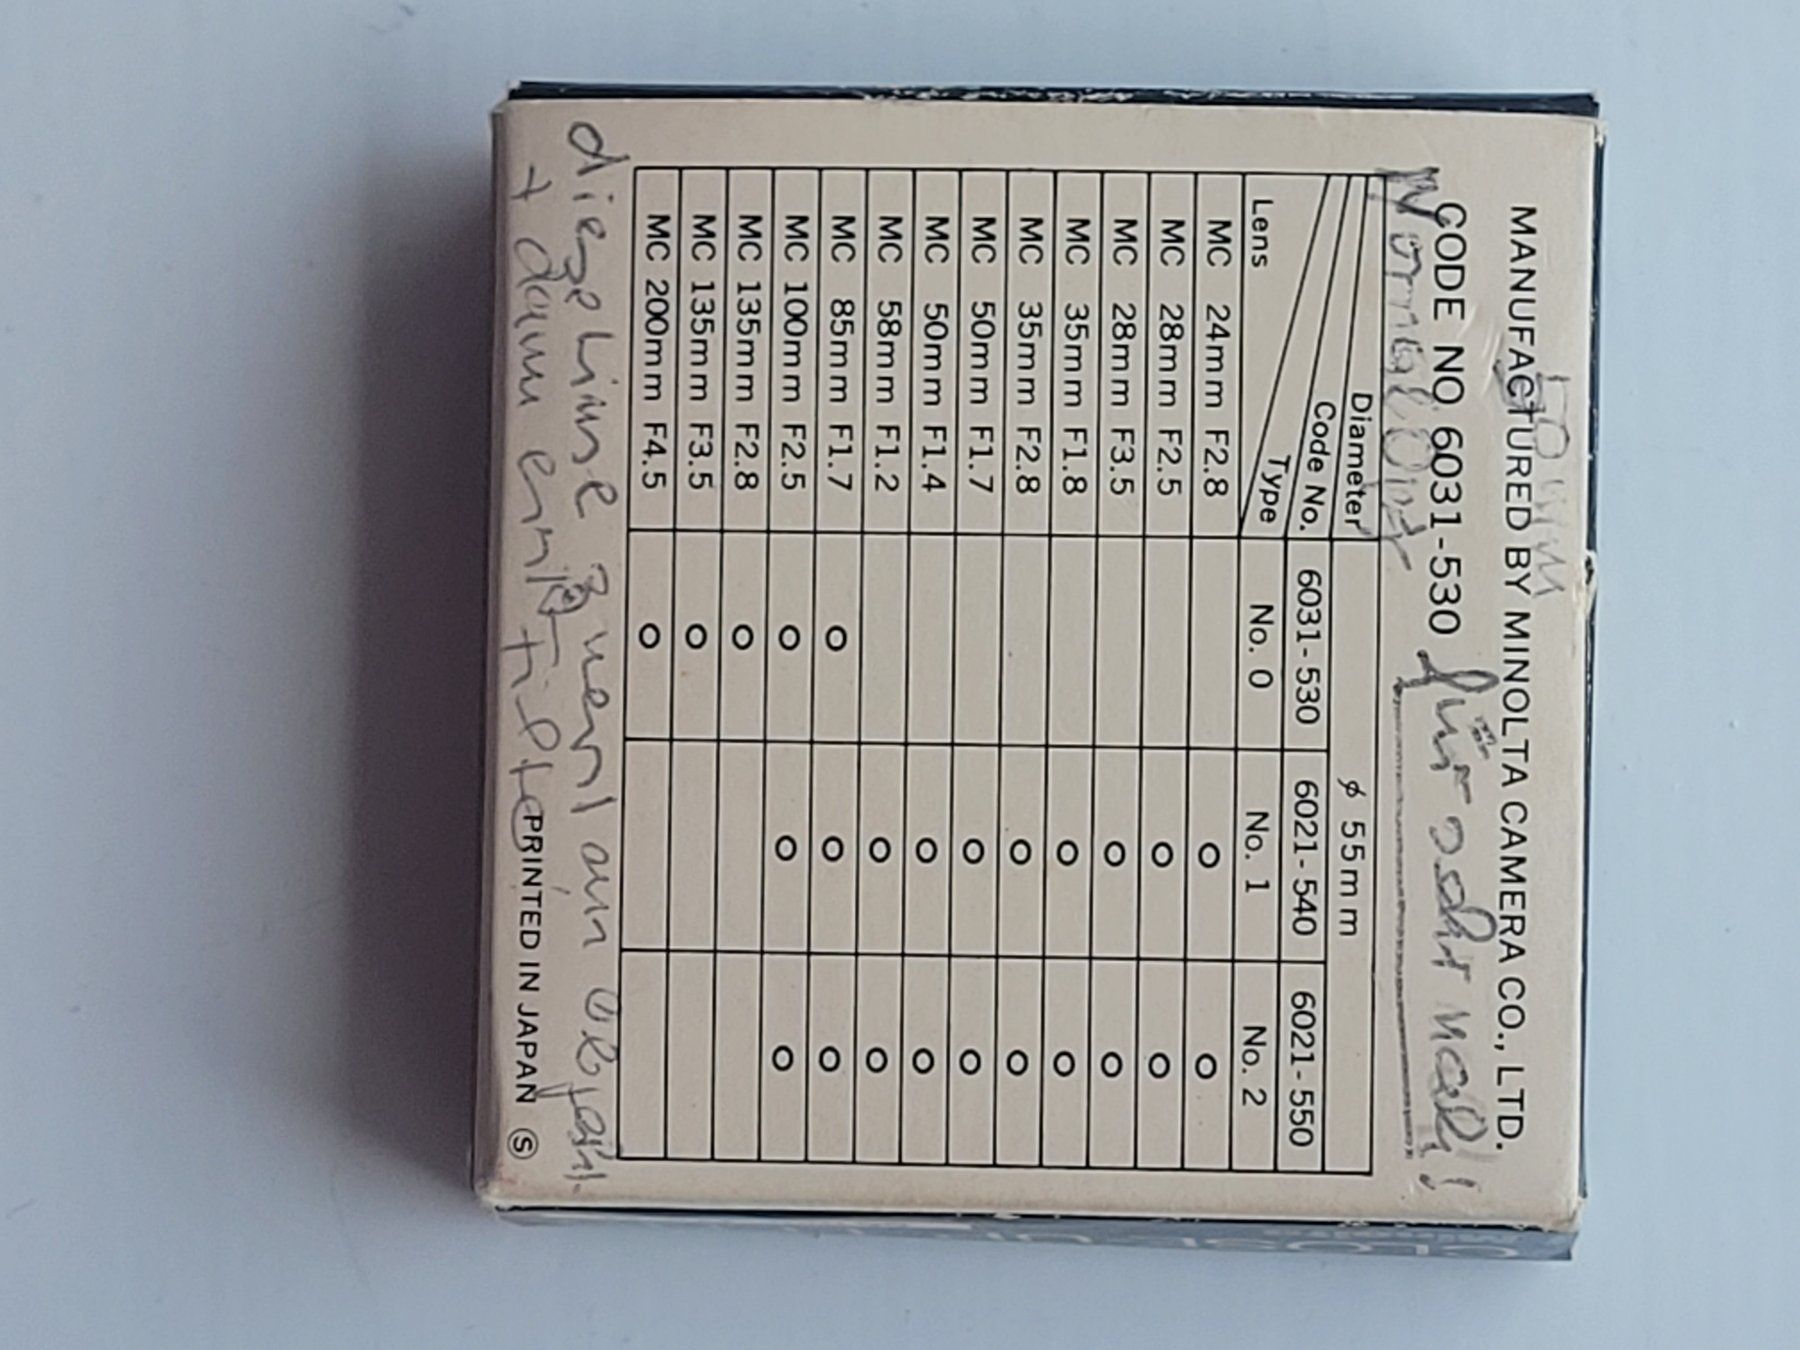 MANUFACTURED BY MINOLTA CAMERA CO., LTD.
CODE NO. 6031-530 für sehr nah!
Diameter ϕ 55mm
Code No. 6031-530 6021-540 6021-550
Lens Type No. 0 No. 1 No. 2
MC 24mm F2.8 O O
MC 28mm F2.5 O O
MC 28mm F3.5 O O
MC 35mm F1.8 O O
MC 35mm F2.8 O O
MC 50mm F1.7 O O
MC 50mm F1.4 O O
MC 58mm F1.2 O O
MC 85mm F1.7 O O O
MC 100mm F2.5 O O O
MC 135mm F2.8 O
MC 135mm F3.5 O
MC 200mm F4.5 O
diese Linse zuerst am Objekt.
+ dann erst Filter
PRINTED IN JAPAN Ⓢ
CLOSE-UP